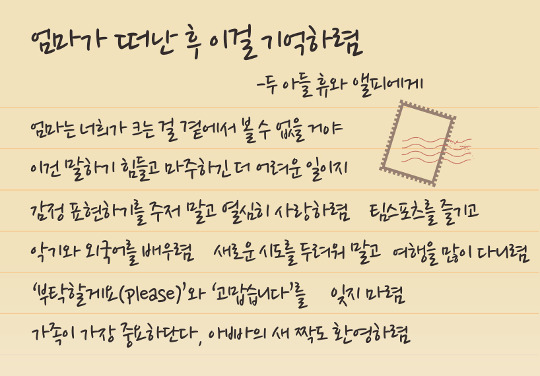 엄마가 떠난 후 이걸 기억하렴
-두 아들 휴와 앨피에게
엄마는 너희가 크는 걸 곁에서 볼 수 없을 거야
이건 말하기 힘들고 마주하긴 더 어려운 일이지
감정 표현하기를 주저 말고 열심히 사랑하렴 팀스포츠를 즐기고
악기와 외국어를 배우렴 새로운 시도를 두려워 말고 여행을 많이 다니렴
‘부탁할게요(please)’와 ‘고맙습니다’를 잊지 마렴
가족이 가장 중요하단다, 아빠의 새 짝도 환영하렴